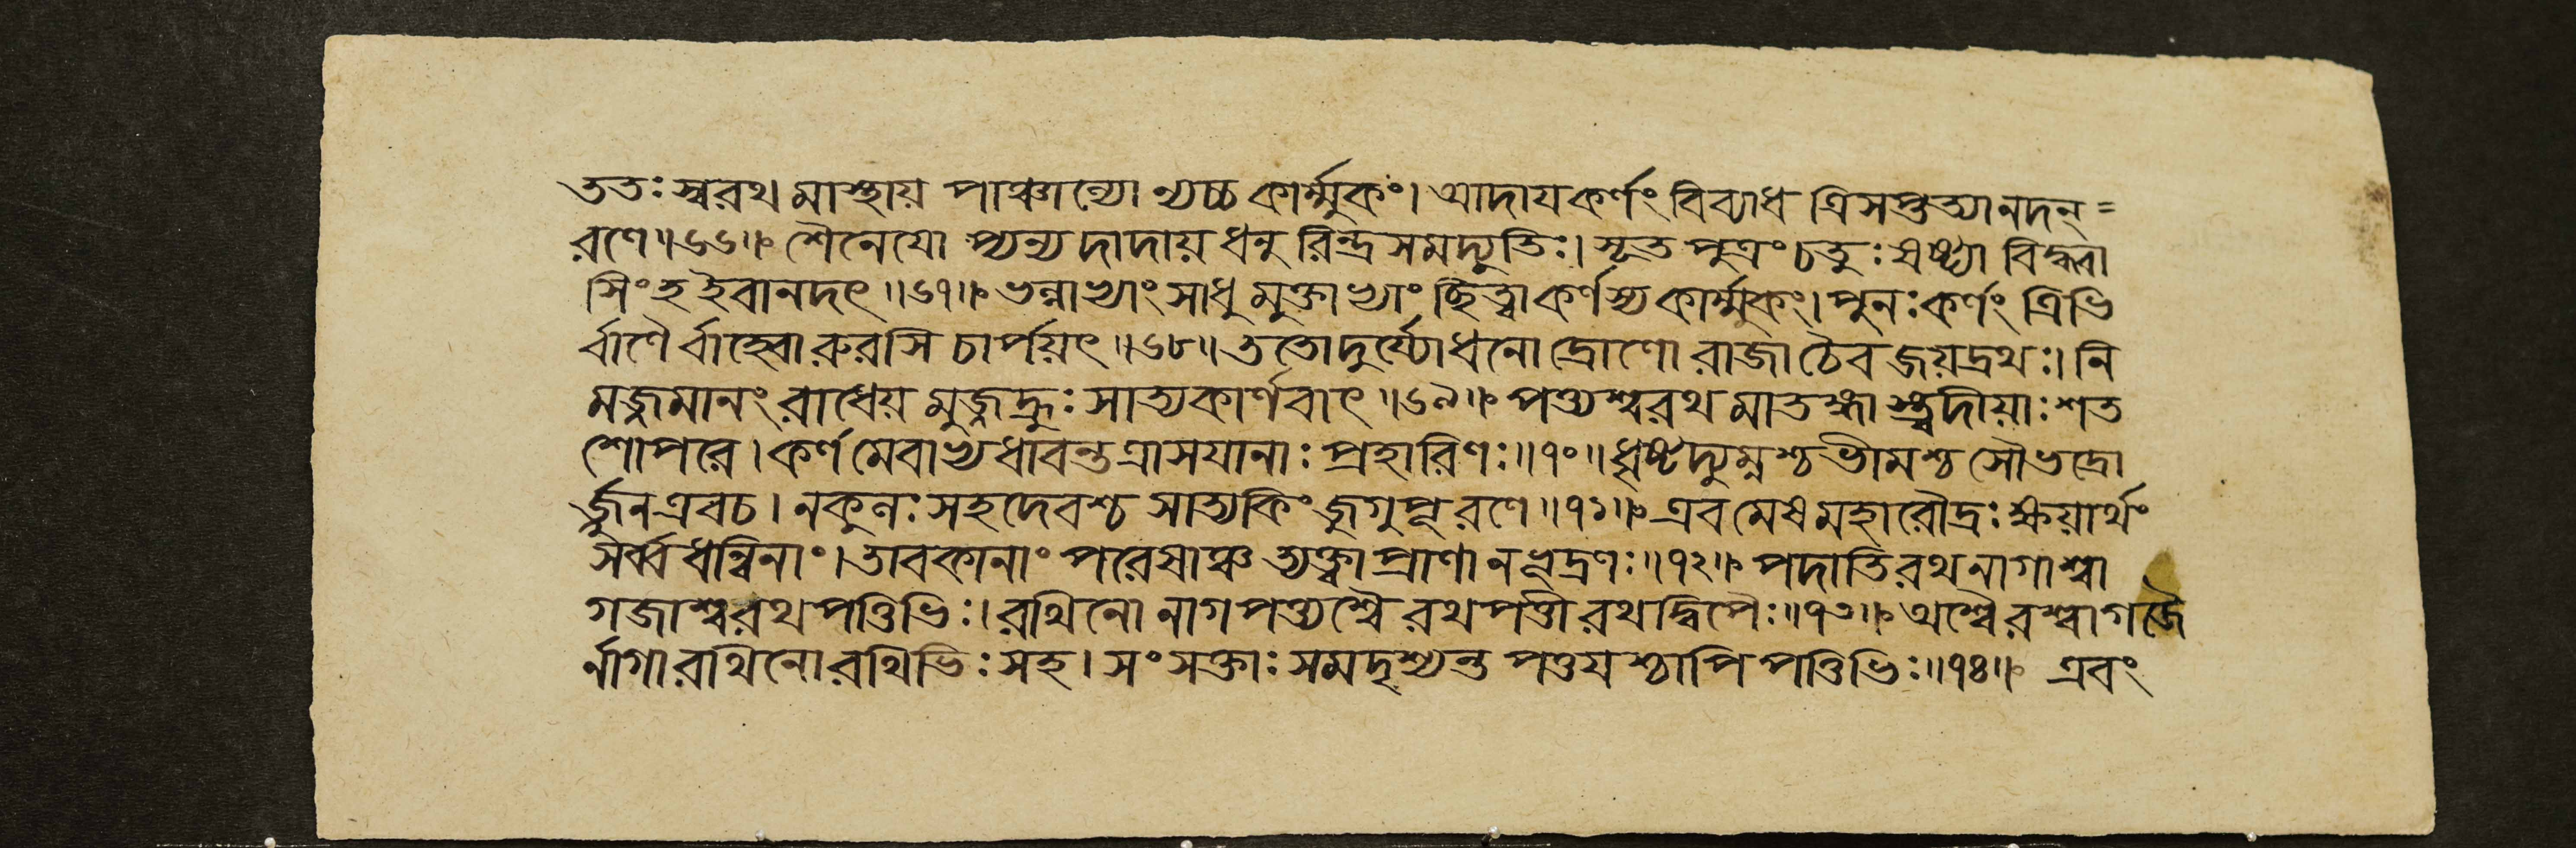 ততঃ স্বরথ মাস্থায় পাঞ্চাল্যো ন্যচ্চ কার্ম্মুকং। আদায কর্ণং বিব্যাধ ত্রিসপ্তত্যা নদন্ =
রণে॥৬৬॥ শৈনেযো প্যন্য দাদায় ধনু রিন্দ্র সমদ্যুতিঃ। সূত পুত্রং চতুঃ ষষ্ট্যা বিদ্ধ্বা
সিংহ ইবানদৎ॥৬৭॥ ভল্লাভ্যাং সাধু মুক্তাভ্যাং ছিত্ত্বা কর্ণস্য কার্ম্মুকং। পুনঃ কর্ণং ত্রিভি
র্বাণৈ র্বাহ্বো রুরসি চার্পয়ৎ॥৬৮॥ ততো দুর্য্যোধনো দ্রোণো রাজা চৈব জয়দ্রথঃ। নি
মজ্জমানং রাধেয় মুজ্জহ্রুঃ সাত্যকার্ণবাৎ॥৬৯॥ পত্ত্যশ্বরথ মাতঙ্গা স্ত্বদীয়াঃ শত
শো পরে। কর্ণ মেবাভ্যধাবন্ত ত্রাসযানাঃ প্রহারিণঃ॥৭০॥ ধৃষ্টদ্যুম্নশ্চ ভীমশ্চ সৌভদ্রো
র্জ্জুন এবচ। নকুলঃ সহদেবশ্চ সাত্যকিং জুগুপূ রণে॥৭১॥ এবমেষ মহারৌদ্রঃ ক্ষয়ার্থং
সর্ব্ব ধন্বিনাং। তাবকানাং পরেষাঞ্চ ত্যক্ত্বা প্রাণা নভূদ্রণঃ॥৭২॥ পদাতি রথ নাগাশ্বা
গজাশ্ব রথ পত্তিভিঃ। রথিনো নাগ পত্ত্যশ্বৈ রথপত্তী রথ দ্বিপৈঃ॥৭৩॥ অশ্বৈ রশ্বা গজৈ
র্নাগা রথিনো রথিভিঃ সহ। সংসক্তাঃ সমদৃশ্যন্ত পত্তয শ্চাপি পত্তিভিঃ॥৭৪॥ এবং